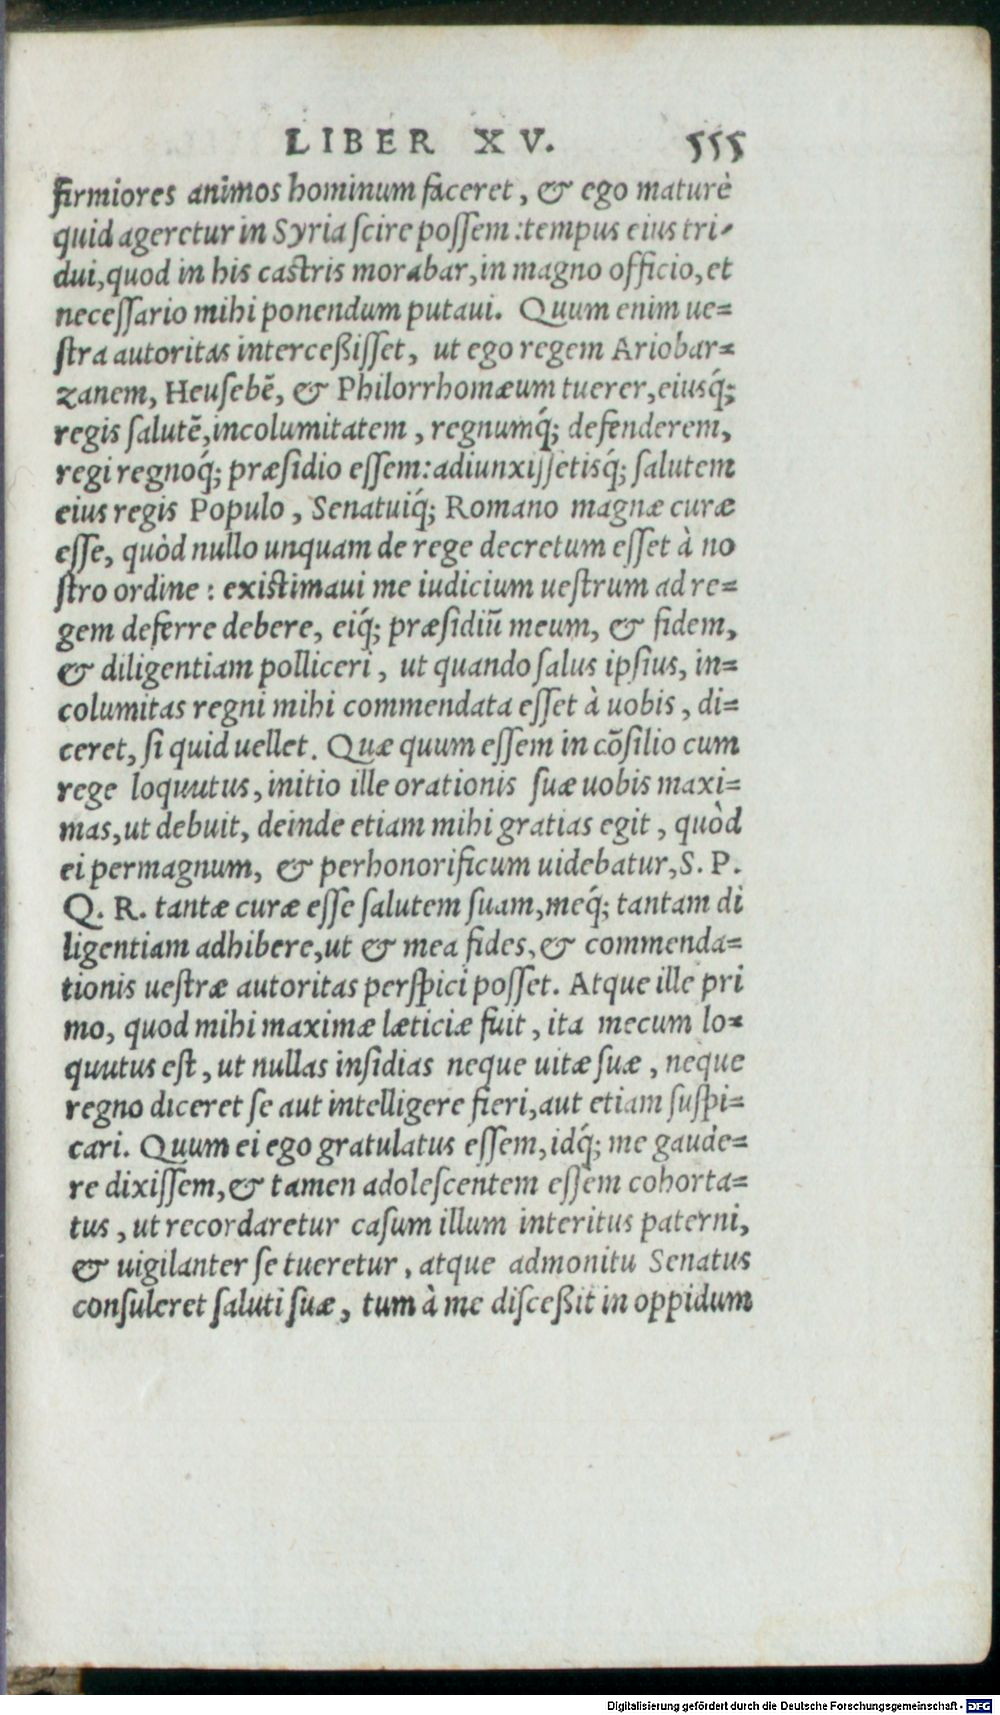 LIBER XV. 555
firmiores animos hominum faceret, & ego maturè
quid ageretur in Syria scire possem: tempus eius tri-
dui, quod in his castris morabar, in magno officio, et
necessario mihi ponendum putaui. Quum enim ue=
stra autoritas interceßisset, ut ego regem Ariobar=
zanem, Heusebẽ, & Philorrhomæum tuerer, eiusq́;
regis salutẽ, incolumitatem, regnumq́; defenderem,
regi regnoq́; præsidio essem: adiunxissetisq́; salutem
eius regis Populo, Senatuiq́; Romano magnæ curæ
esse, quòd nullo unquam de rege decretum esset à no
stro ordine: existimaui me iudicium uestrum ad re=
gem deferre debere, eiq́; præsidiũ meum, & fidem,
& diligentiam polliceri, ut quando salus ipsius, in=
columitas regni mihi commendata esset à uobis, di=
ceret, si quid uellet. Quæ quum essem in cõsilio cum
rege loquutus, initio ille orationis suæ uobis maxi=
mas, ut debuit, deinde etiam mihi gratias egit, quòd
ei permagnum, & perhonorificum uidebatur, S. P.
Q. R. tantæ curæ esse salutem suam, meq́; tantam di
ligentiam adhibere, ut & mea fides, & commenda=
tionis uestræ autoritas perspici posset. Atque ille pri
mo, quod mihi maximæ læticiæ fuit, ita mecum lo=
quutus est, ut nullas insidias neque uitæ suæ, neque
regno diceret se aut intelligere fieri, aut etiam suspi=
cari. Quum ei ego gratulatus essem, idq́; me gaude=
re dixissem, & tamen adolescentem essem cohorta=
tus, ut recordaretur casum illum interitus paterni,
& uigilanter se tueretur, atque admonitu Senatus
consuleret saluti suæ, tum à me disceßit in oppidum
Digitalisierung gefördert durch die Deutsche Forschungsgemeinschaft - DFG